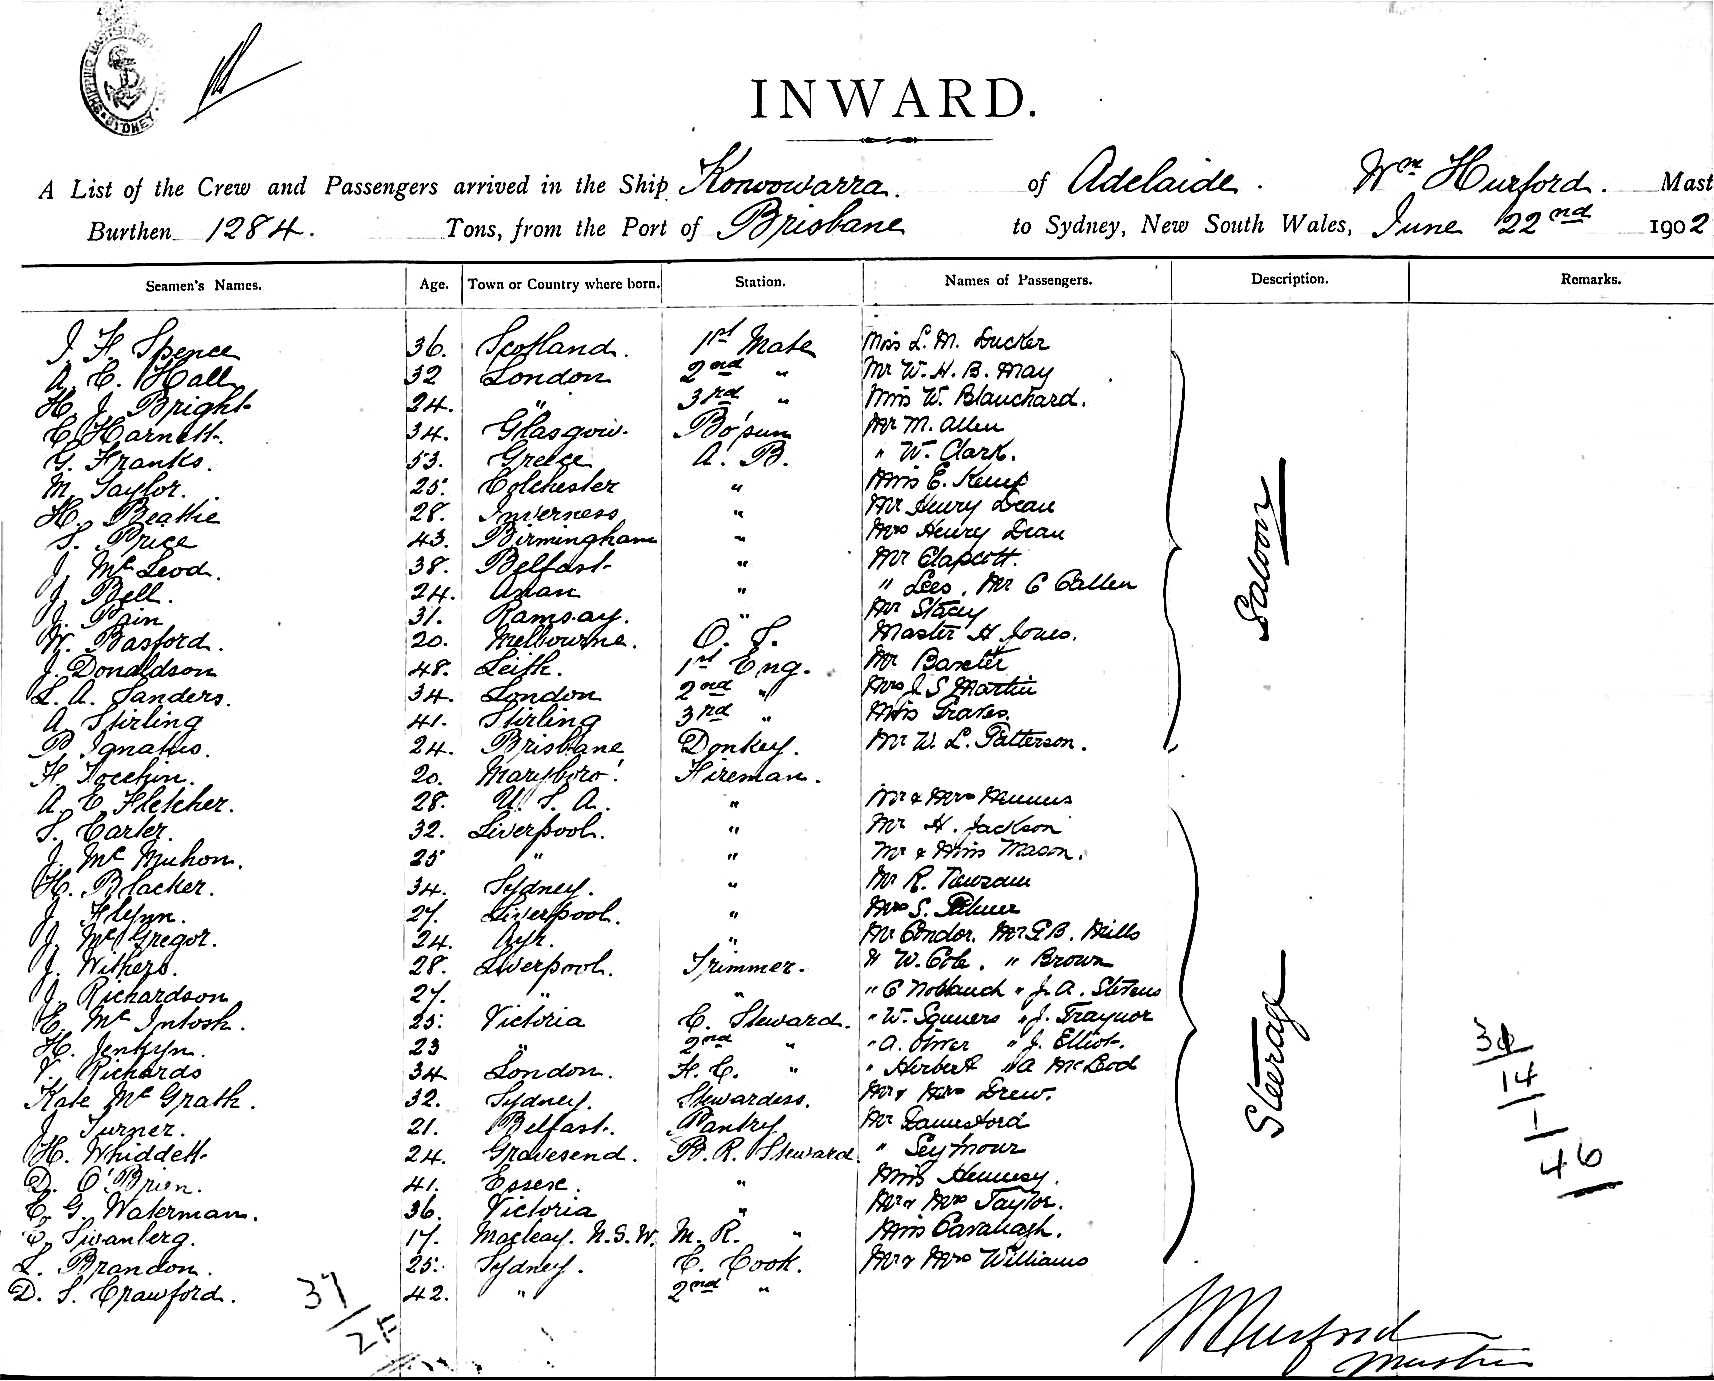 INWARD.
A List of the Crew and Passengers arrived in the Ship Konoowarra. of Adelaide. Wm Hurford. Mast
Burthen 1284. Tons, from the Port of Brisbane to Sydney, New South Wales, June 22nd 1902
Seamen's Names. Age. Town or Country where born. Station. Names of Passengers. Description. Remarks.
J. H. Spence 36. Scotland. 1st Mate Miss L. M. Ducker
A. E. Hall 32 London 2nd " Mr W. H. B. May
H. J. Bright 24. " 3rd " Miss W. Blanchard.
E. Harnett. 34. Glasgow. Bo'sun Mr M. Allen
G. Franks. 53. Greece A. B. " W. Clark.
M. Taylor. 25. Colchester " Miss E. Kemp
H. Beattie 28. Inverness " Mr Henry Dean
S. Price 43. Birmingham " Mrs Henry Dean
J. McLeod. 38. Belfast. " Mr Clapcott.
J. Bell. 24. Arran " " Lees. Mr C Callen
J. Pain 31. Ramsay. " Mr Stacey
W. Basford. 20. Melbourne. O. S. Master H Jones.
J. Donaldson 48. Leith. 1st Eng. Mr Baxter
L. A. Sanders. 34. London 2nd " Mrs J. S Martin
A. Stirling 41. Stirling 3rd " Miss Graves.
P. Ignatius. 24. Brisbane Donkey. Mr W. L. Patterson.
H. 20. Marysboro'. Fireman.
A. E Fletcher. 28. U. S. A. " Mr & Mrs
S. Carter. 32. Liverpool. " Mr H. Jackson
J. McMuhon. 25 " " Mr & Miss Mason.
H. Blacker. 34. Sydney. " Mr R. Newsam
J. Flynn. 27. Liverpool. " Mrs S. Palmer
J. McGregor. 24. Ayr. " Mr Condor. Mr G B. Mills
J. Withers. 28. Liverpool. Trimmer. " W. Cole. " Brown
J. Richardson 27. " " " C Noblauch " J. A. Stevens
E. McIntosh. 25. Victoria C. Steward. " W. Squires " J. Traynor
H. Jenkyn. 23 " 2nd " " A. Oliver " J. Elliot.
V. Richards 34 London. F. C. " " Herbert " A McLeod
Kate McGrath. 32. Sydney. Stewardess. Mr & Mrs Drew.
J. Turner. 21. Belfast. Pantry Mr
H. Whiddett 24. Gravesend. B. R. Steward. " Seymour
D. O'Brien. 41. Essex. " Miss Hennesy.
E. G. Waterman. 36. Victoria " Mr & Mrs Taylor.
E. Swanberg. 17. Macleay. N.S.W. M. R. " Miss Cavanagh.
L. Brandon. 25. Sydney. C. Cook. Mr & Mrs Williams
D. S. Crawford. 42. " 2nd "
Saloon
Steerage
14
1
46
37
WHurford
Master